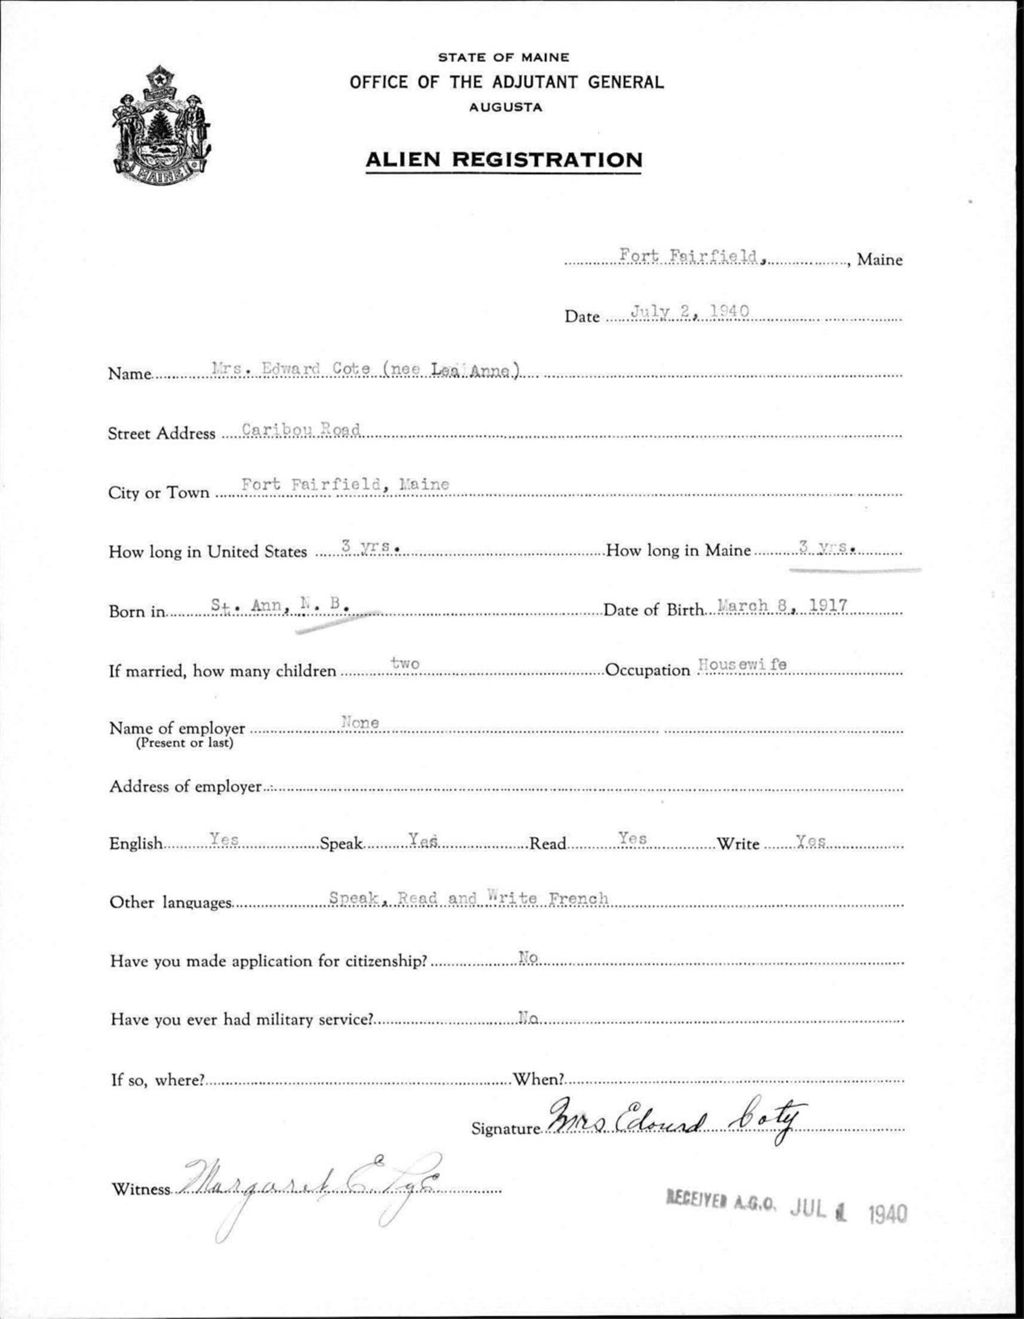 STATE OF MAINE
OFFICE OF THE ADJUTANT GENERAL
AUGUSTA
MAINE
ALIEN REGISTRATION
Fort Fairfield, , Maine
Date July 2, 1940
Name Mrs. Edward Cote (nee Lea Anne)
Street Address Caribou Road
City or Town Fort Fairfield, Maine
How long in United States 3 yrs. How long in Maine 3 yrs.
Born in St. Ann, N. B. Date of Birth March 8, 1917
If married, how many children two Occupation Housewife
Name of employer None
(Present or last)
Address of employer
English Yes Speak Yes Read Yes Write Yes
Other languages Speak, Read and Write French
Have you made application for citizenship? No
Have you ever had military service? No
If so, where? When?
Signature Mrs Edouard Coty
Witness Margaret E.
RECEIVED A.G.O. JUL 1940